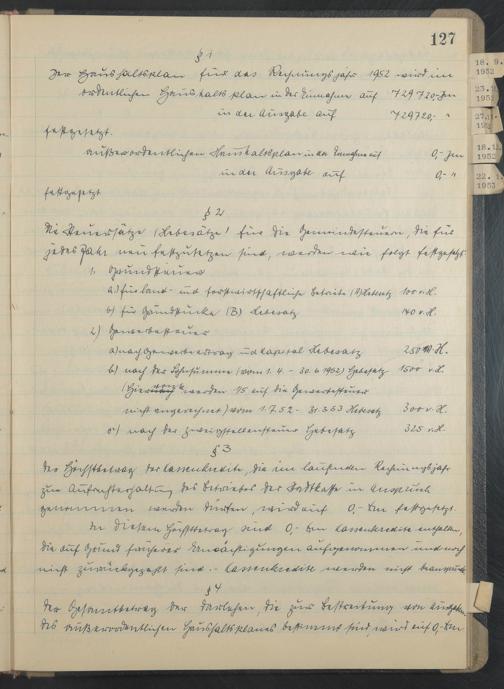 127
§ 1
Der Haushaltsplan für das Rechnungsjahr 1952 wird im
ordentlichen Haushaltsplan in der Einnahme auf 729720,- Dm
in der Ausgabe auf 729720,- "
festgesetzt.
außerordentlichen Haushaltsplan in der Einnahme auf 0,- Dm
in der Ausgabe auf 0,- "
festgesetzt
§ 2
Die Steuersätze (Hebesätze) für die Gemeindesteuern, die für
jedes Jahr neu festzusetzen sind, werden wie folgt festgesetzt
1. Grundsteuer
a) für land- und forstwirtschaftliche Betriebe (A) Hebesatz 100 v.H.
b) für Grundstücke (B) Hebesatz 140 v.H.
2) Gewerbesteuer
a) nach Gewerbeertrag und Kapital Hebesatz 250 v.H.
b) nach der Lohnsumme (vom 1.4. - 30.6.1952) Hebesatz 1500 v.H.
(Hiervon werden 15 auf die Gewerbesteuer
nicht angerechnet) vom 1.7.52 - 31.3.53 Hebesatz 300 v.H.
c) nach der Zweigstellensteuer Hebesatz 325 v.H.
§ 3
Der Höchstbetrag der Kassenkredite, die im laufenden Rechnungsjahr
zur Aufrechterhaltung des Betriebes der Stadtkasse in Anspruch
genommen werden dürfen, wird auf 0,- Dm festgesetzt.
In diesem Höchstbetrag sind 0,- Dm Kassenkredite enthalten,
die auf Grund früherer Ermächtigungen aufgenommen und noch
nicht zurückgezahlt sind. - Kassenkredite werden nicht beansprucht
§ 4
Der Gesamtbetrag der Darlehen, die zur Bestreitung von Ausgaben
des außerordentlichen Haushaltsplanes bestimmt sind, wird auf 0,- Dm
18. 9.
1952
23.
1952
27.
18. 12.
1952
22. 1.
1953